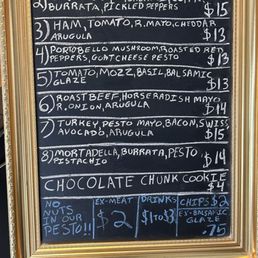 2) BURRATA, PICKLED PEPPERS $15
3) HAM, TOMATO, R. MAYO, CHEDDAR
ARUGULA $13
4) PORTOBELLO MUSHROOM, ROASTED RED
PEPPERS, GOAT CHEESE PESTO $13
5) TOMATO, MOZZ, BASIL, BALSAMIC
GLAZE $13
6) ROAST BEEF, HORSERADISH MAYO
R. ONION, ARUGULA $14
7) TURKEY, PESTO MAYO, BACON, SWISS,
AVOCADO, ARUGULA $15
8) MORTADELLA, BURRATA, PESTO
PISTACHIO $14
CHOCOLATE CHUNK COOKIE
$4
NO
NUTS
IN OUR
PESTO!!
EX-MEAT
$2
DRINKS
$1 to $3
CHIPS $2
EX-BALSAMIC
GLAZE
.75